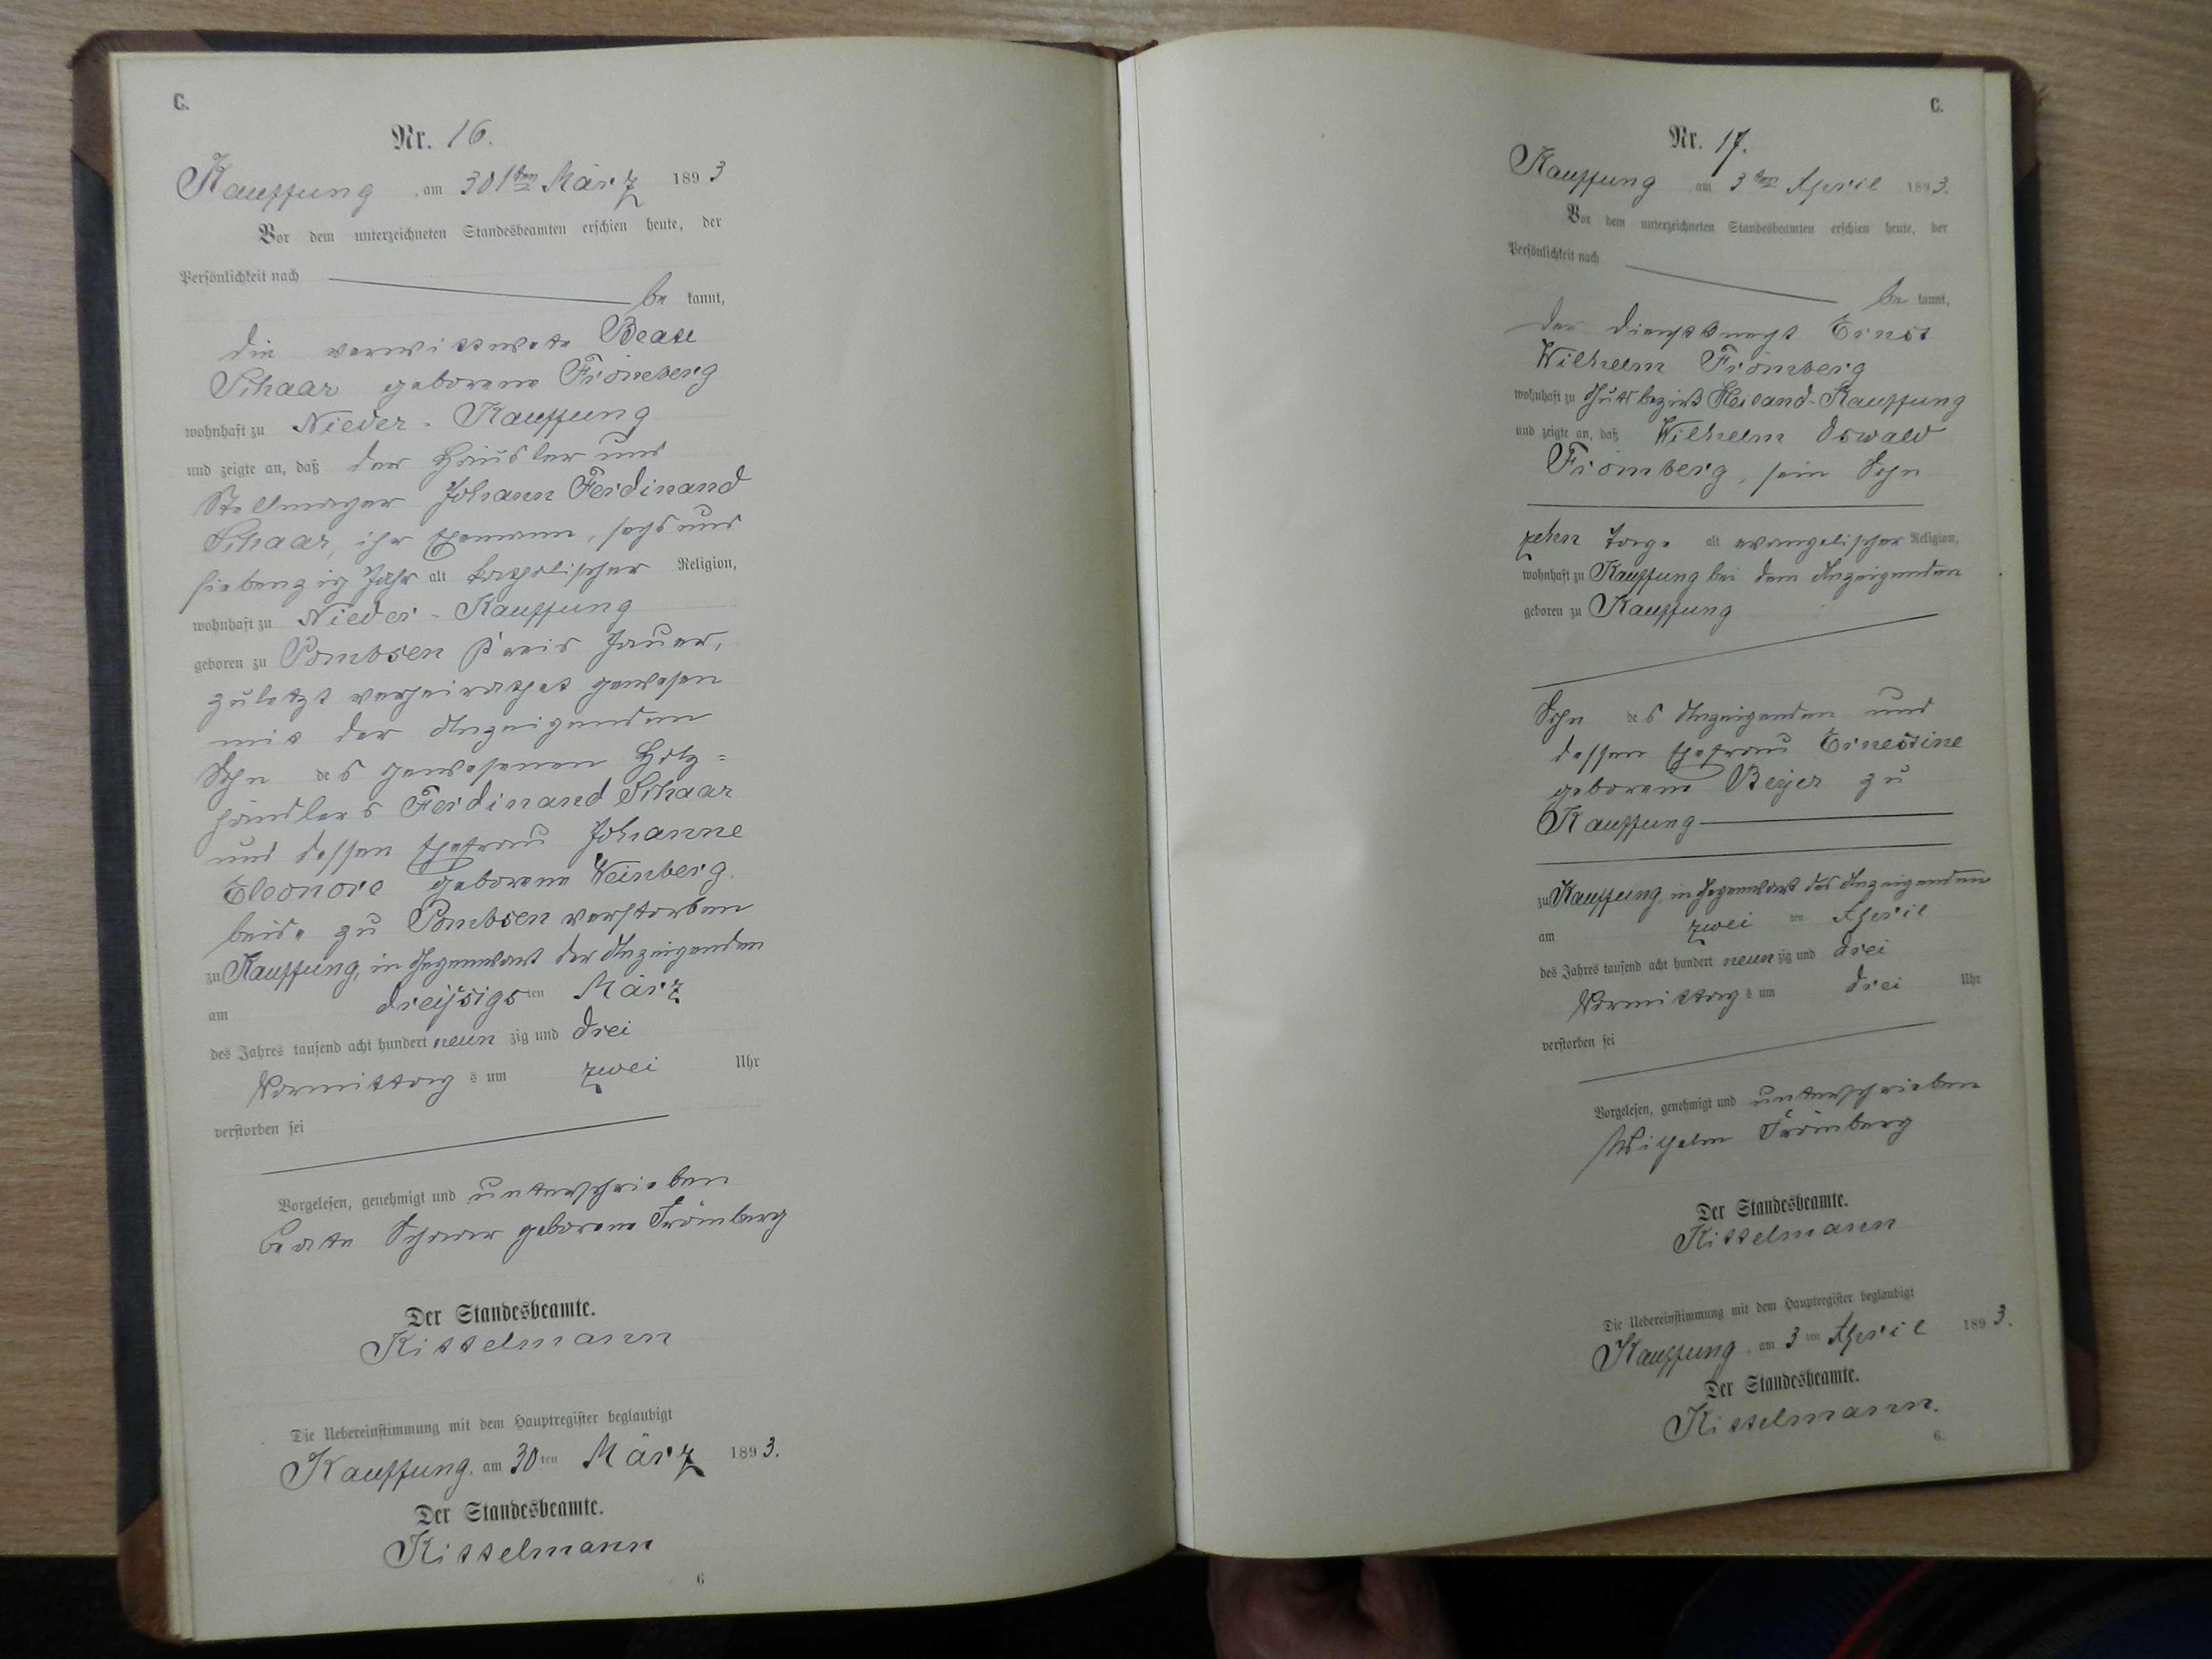 C.
Nr. 16.
Kauffung, am 30ten März 1893
Vor dem unterzeichneten Standesbeamten erschien heute, der
Persönlichkeit nach
be kannt,
die verwittwete Beate
Schaar geborene Frömberg
wohnhaft zu Nieder-Kauffung
und zeigte an, daß der Häusler und
Stellmacher Johann Ferdinand
Schaar, ihr Ehemann, sechs und
siebenzig Jahr alt katholischer Religion,
wohnhaft zu Nieder-Kauffung
geboren zu Pombsen Kreis Jauer,
zuletzt verheirathet gewesen
mit der Anzeigenden
Sohn des gewesenen Holz=
händlers Ferdinand Schaar
und dessen Ehefrau Johanne
Eleonore geborene Weinberg,
beide zu Pombsen verstorben
zu Kauffung, in Gegenwart der Anzeigenden
am dreißigsten März
des Jahres tausend acht hundert neunzig und drei
Vormittags um zwei Uhr
verstorben sei
Vorgelesen, genehmigt und unterschrieben
Beate Schaar geborene Frömberg
Der Standesbeamte.
Kittelmann
Die Uebereinstimmung mit dem Hauptregister beglaubigt
Kauffung, am 30ten März 1893.
Der Standesbeamte.
Kittelmann
6
C.
Nr. 17.
Kauffung, am 3ten April 1893.
Vor dem unterzeichneten Standesbeamten erschien heute, der
Persönlichkeit nach
be kannt,
der Dienstknecht Ernst
Wilhelm Frömberg
wohnhaft zu Gutsbezirk Heiland-Kauffung
und zeigte an, daß Wilhelm Oswald
Frömberg, sein Sohn
zehn Tage alt evangelischer Religion,
wohnhaft zu Kauffung bei dem Anzeigenden
geboren zu Kauffung
Sohn des Anzeigenden und
dessen Ehefrau Ernestine
geborene Beyer zu
Kauffung
zu Kauffung, in Gegenwart des Anzeigenden
am zweiten April
des Jahres tausend acht hundert neunzig und drei
Vormittags um drei Uhr
verstorben sei
Vorgelesen, genehmigt und unterschrieben
Wilhelm Frömberg
Der Standesbeamte.
Kittelmann
Die Uebereinstimmung mit dem Hauptregister beglaubigt
Kauffung, am 3ten April 1893.
Der Standesbeamte.
Kittelmann.
6.